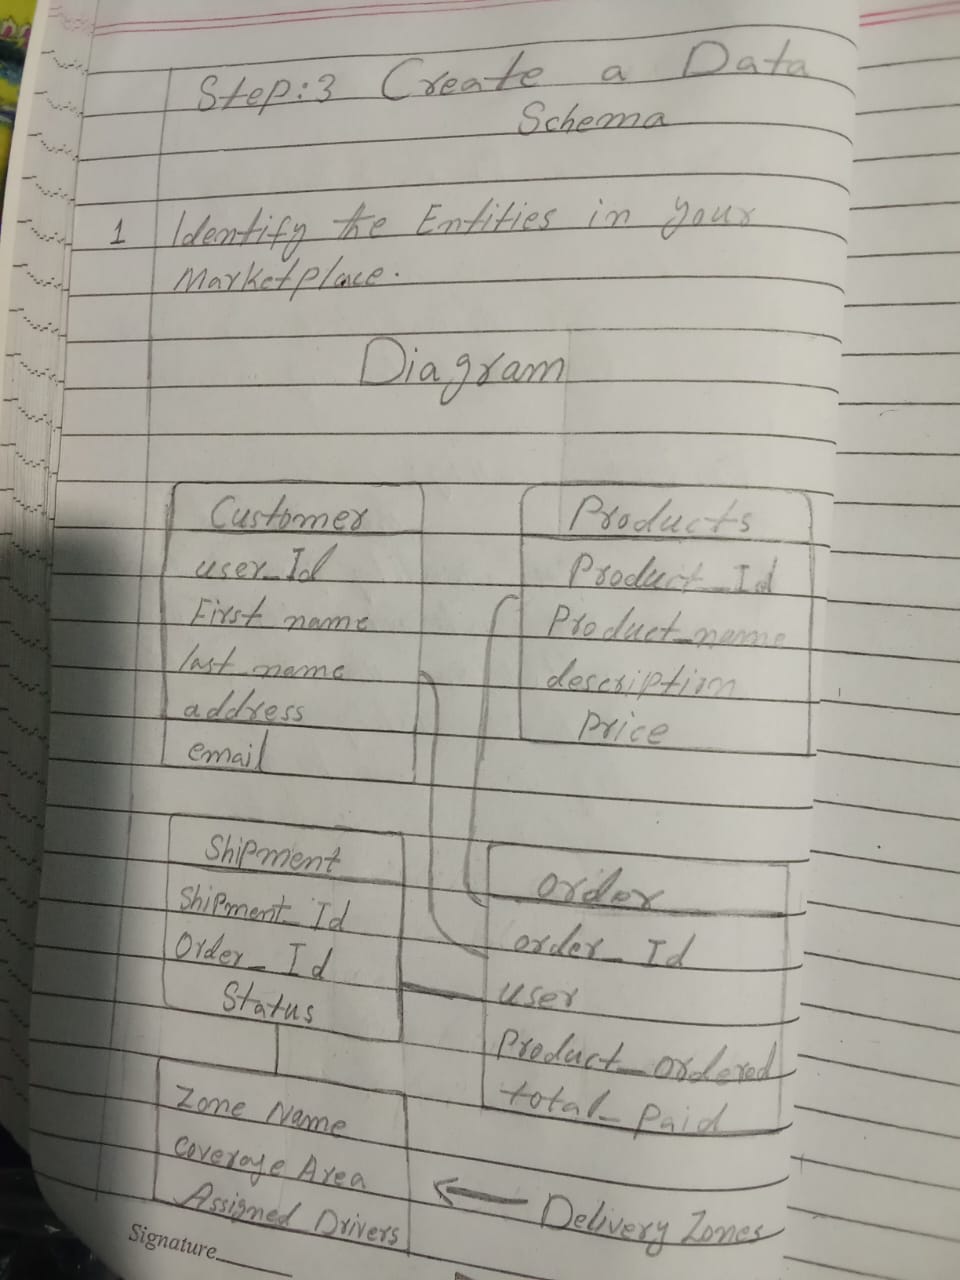 Step:3 Create a Data
Schema
1 Identify the Entities in your
Marketplace.
Diagram
Customer
user_Id
First name
last name
address
email
Products
Product_Id
Product_name
description
Price
Shipment
Shipment_Id
Order_Id
Status
order
order_Id
user
Product_ordered
total_paid
Zone Name
Coverage Area
Assigned Drivers
Delivery Zones
Signature